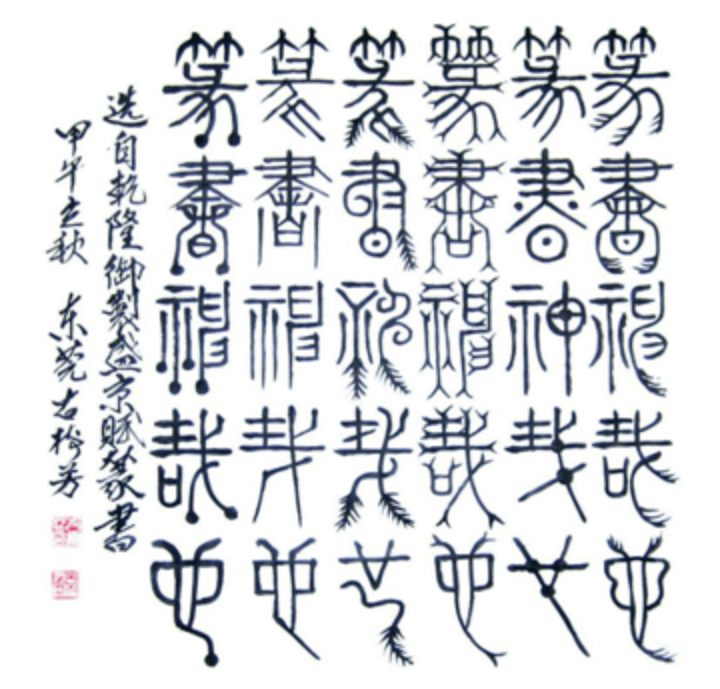 篆書神哉也
篆書神哉也
篆書神哉也
篆書神哉也
篆書神哉也
篆書神哉也
选自乾隆御製盛京賦篆書
甲午立秋 东莞古芳